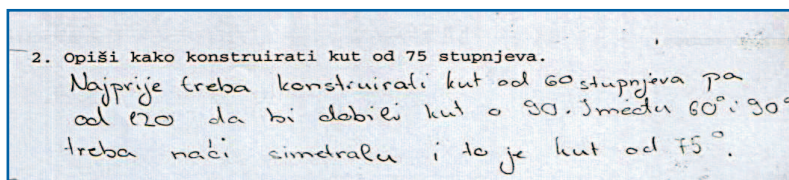 2. Opiši kako konstruirati kut od 75 stupnjeva.
Najprije treba konstruirati kut od 60 stupnjeva pa
od 120 da bi dobili kut o 90. Između 60° i 90°
treba naći simetralu i to je kut od 75°.